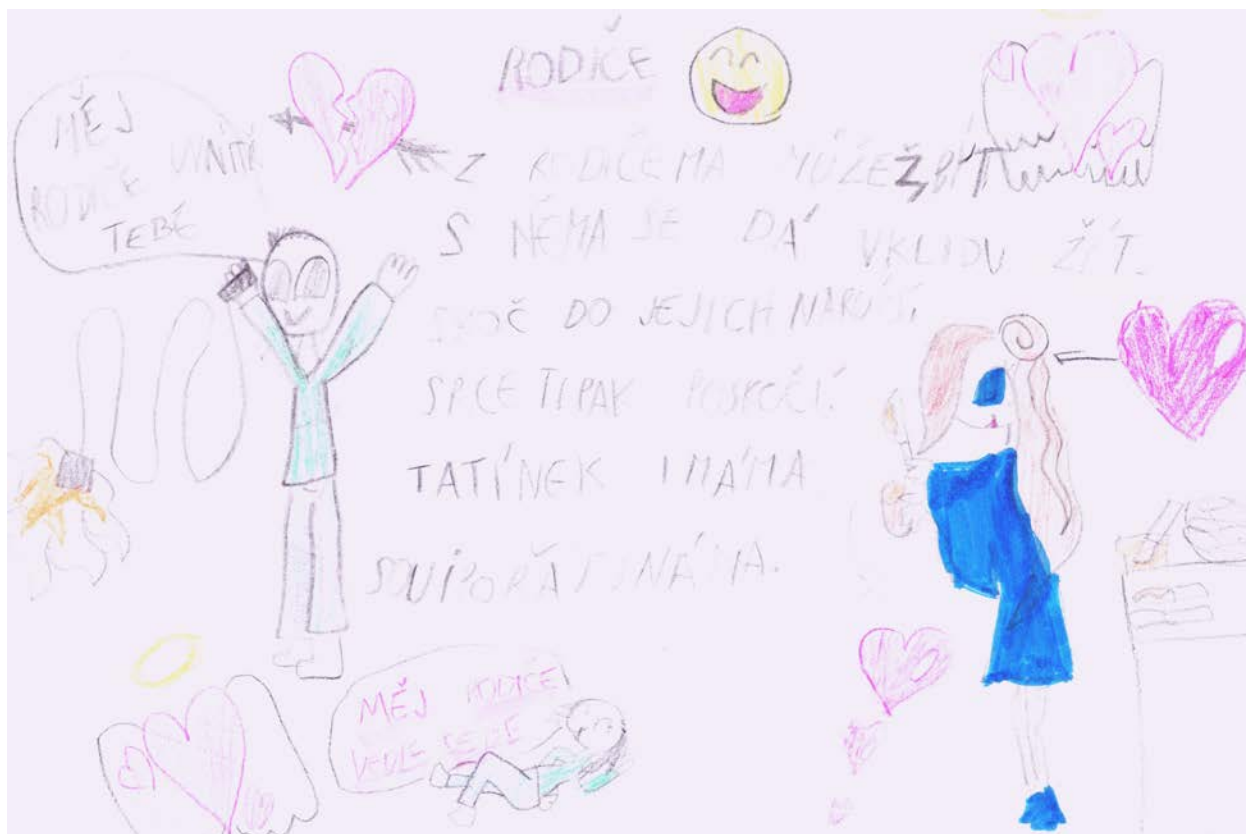 RODIČE
MĚJ
RODIČE UVNITŘ
TEBE
Z RODIČEMA MŮŽEŽ BÍT
S NĚMA SE DÁ VKLIDU ŽÍT.
SKOČ DO JEJICH NARUČÍ,
SRCE TI PAK POSKOČÍ.
TATÍNEK I MÁMA
SOU POŘÁT S NÁMA.
MĚJ RODIČE
VEDLE SEBE